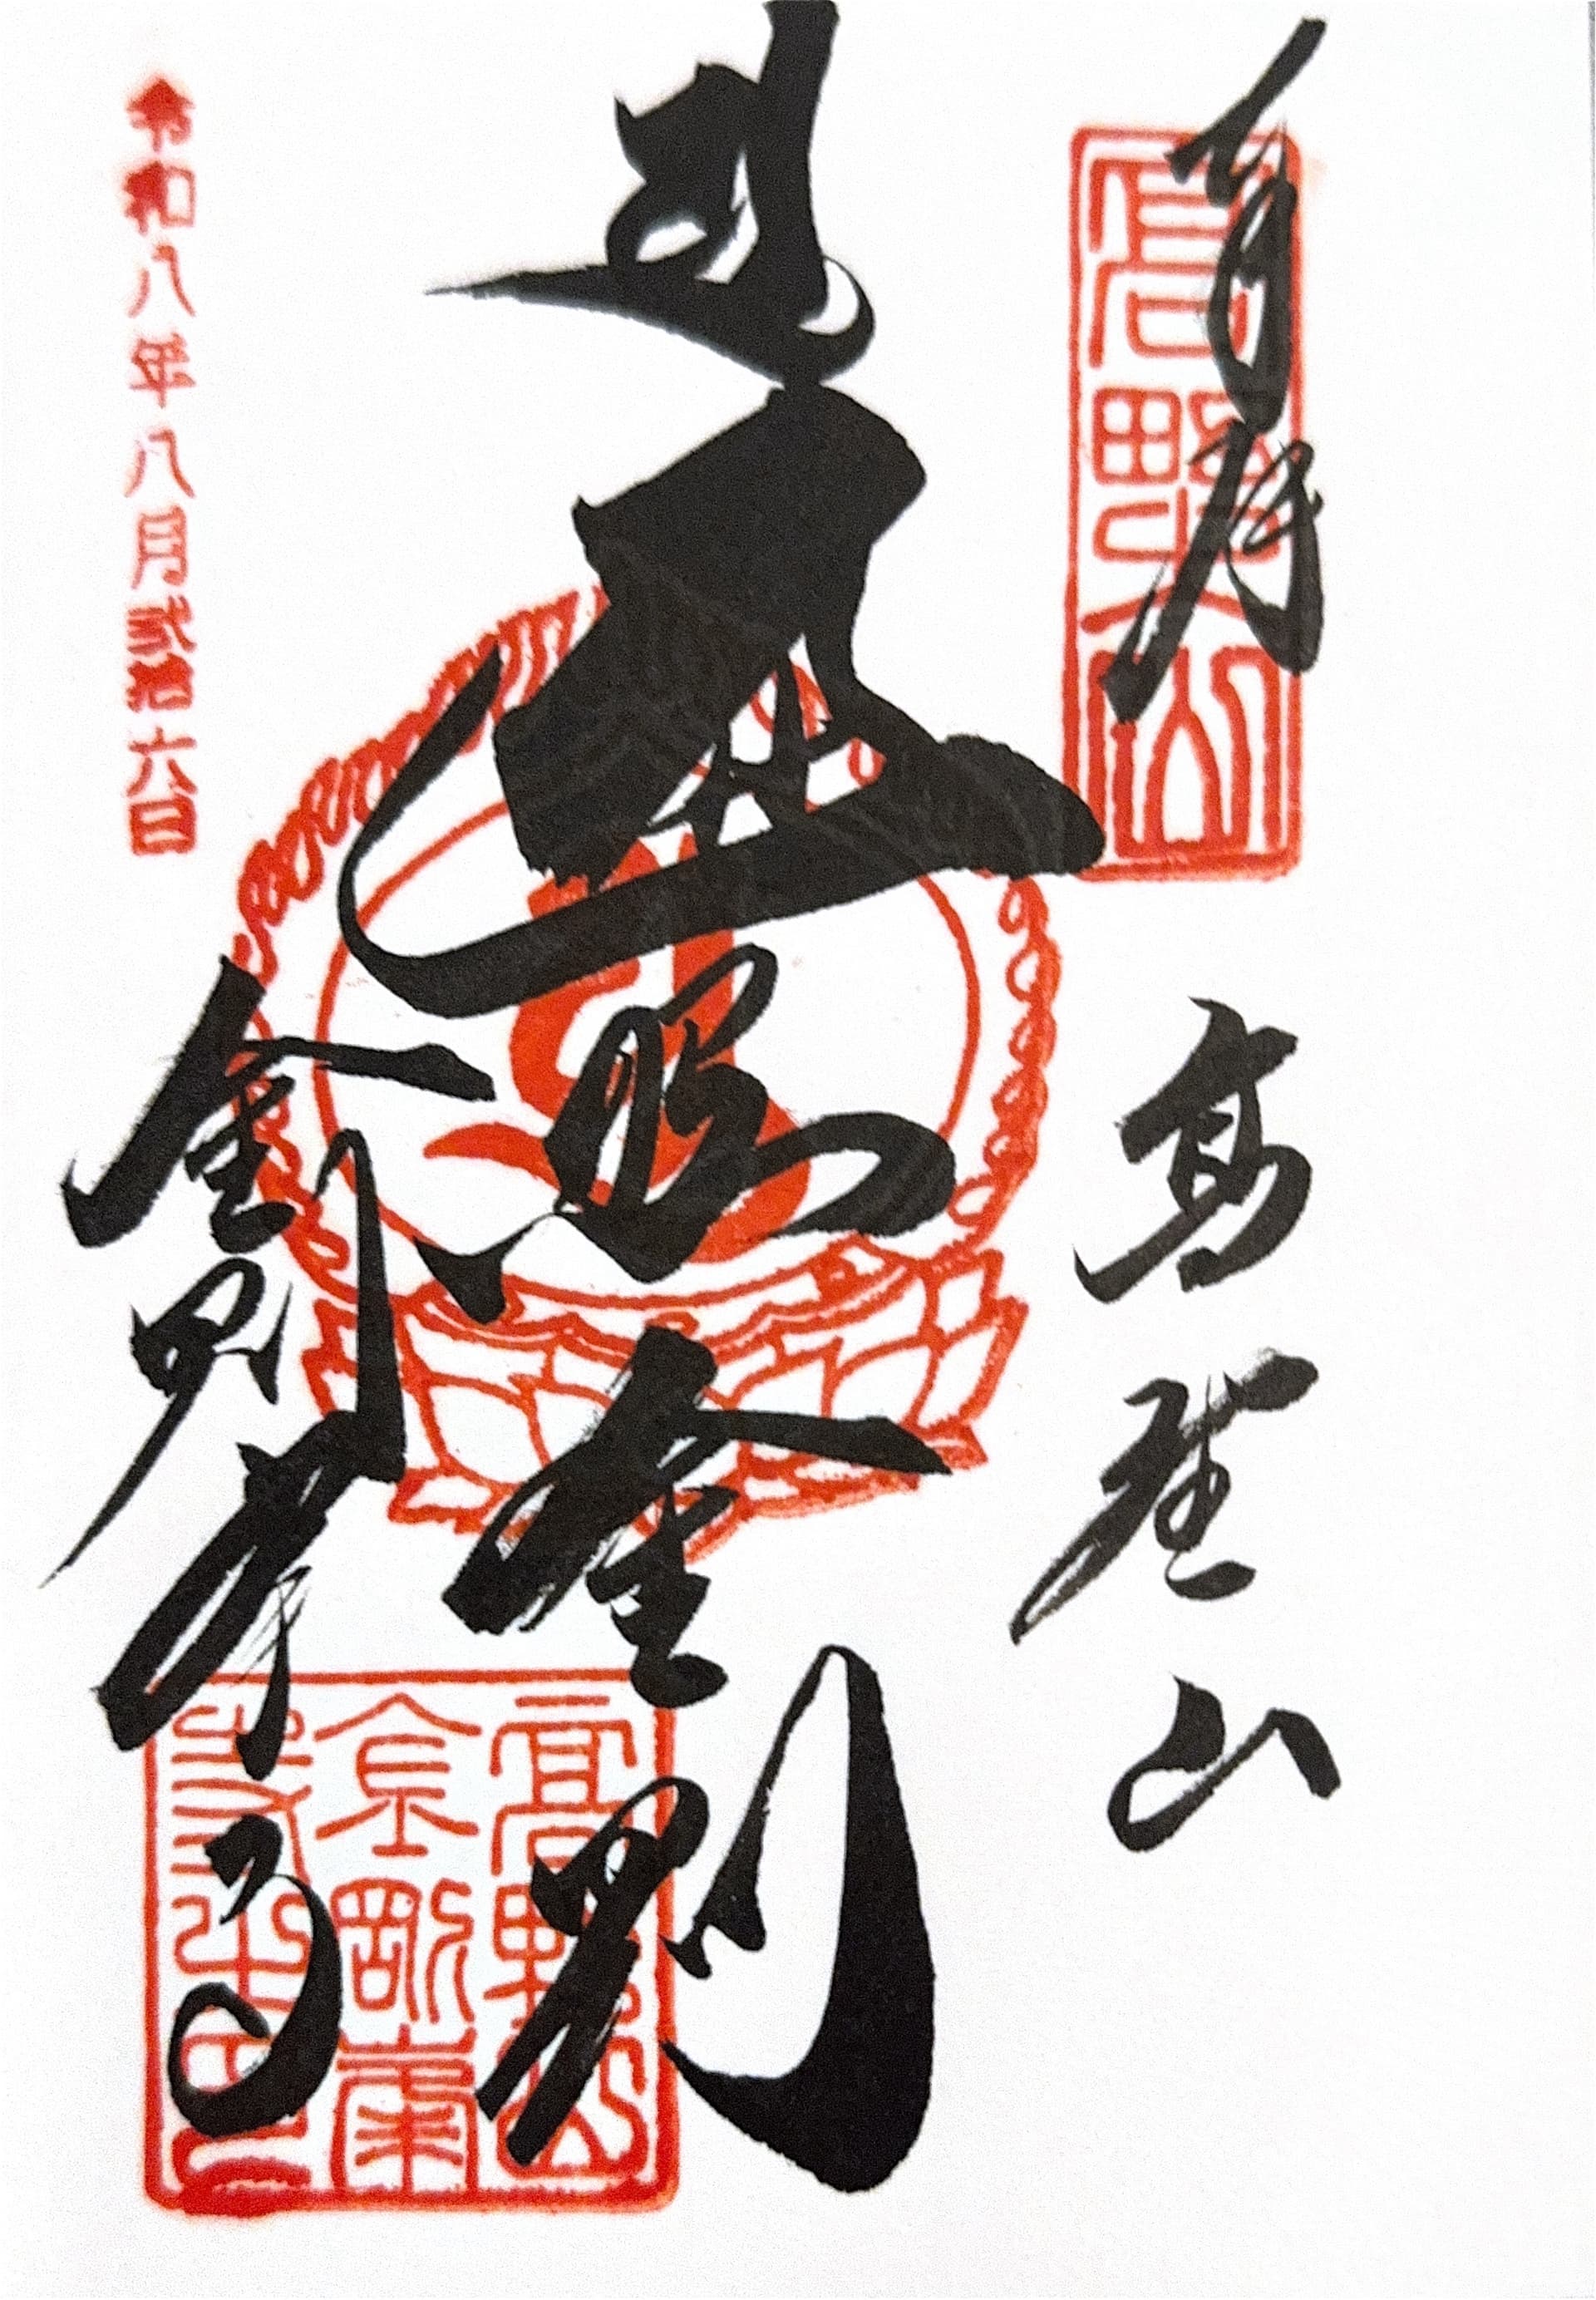 奉拝
高野山
高野山
遍照金剛
金剛峯寺
高野山
金剛峯
寺之印
令和八年八月弐拾六日